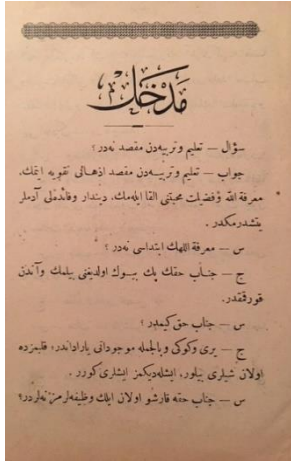 مدخل
سؤال — تعليم وتربيه‌دن مقصد نه‌در ؟
جواب — تعليم وتربيه‌دن مقصد اذهانى تقويه ايتمك،
معرفة الله وفضيلت محبتنى القا ايله‌مك، ديندار وفائده‌لى آدملر
يتشدرمكدر .
س — معرفة اللهك ابتداسى نه‌در ؟
ج — جناب حقك پك بيوك اولديغنى بيلمك وآندن
قورقمقدر.
س — جناب حق كيمدر ؟
ج — يرى وكوكى وبالجمله موجوداتى ياراداندر، قلبمزده
اولان شيلرى بيلور، ايشله‌ديكمز ايشلرى كورر .
س — جناب حقه قارشو اولان ايلك وظيفه‌لرمز نه‌لردر؟